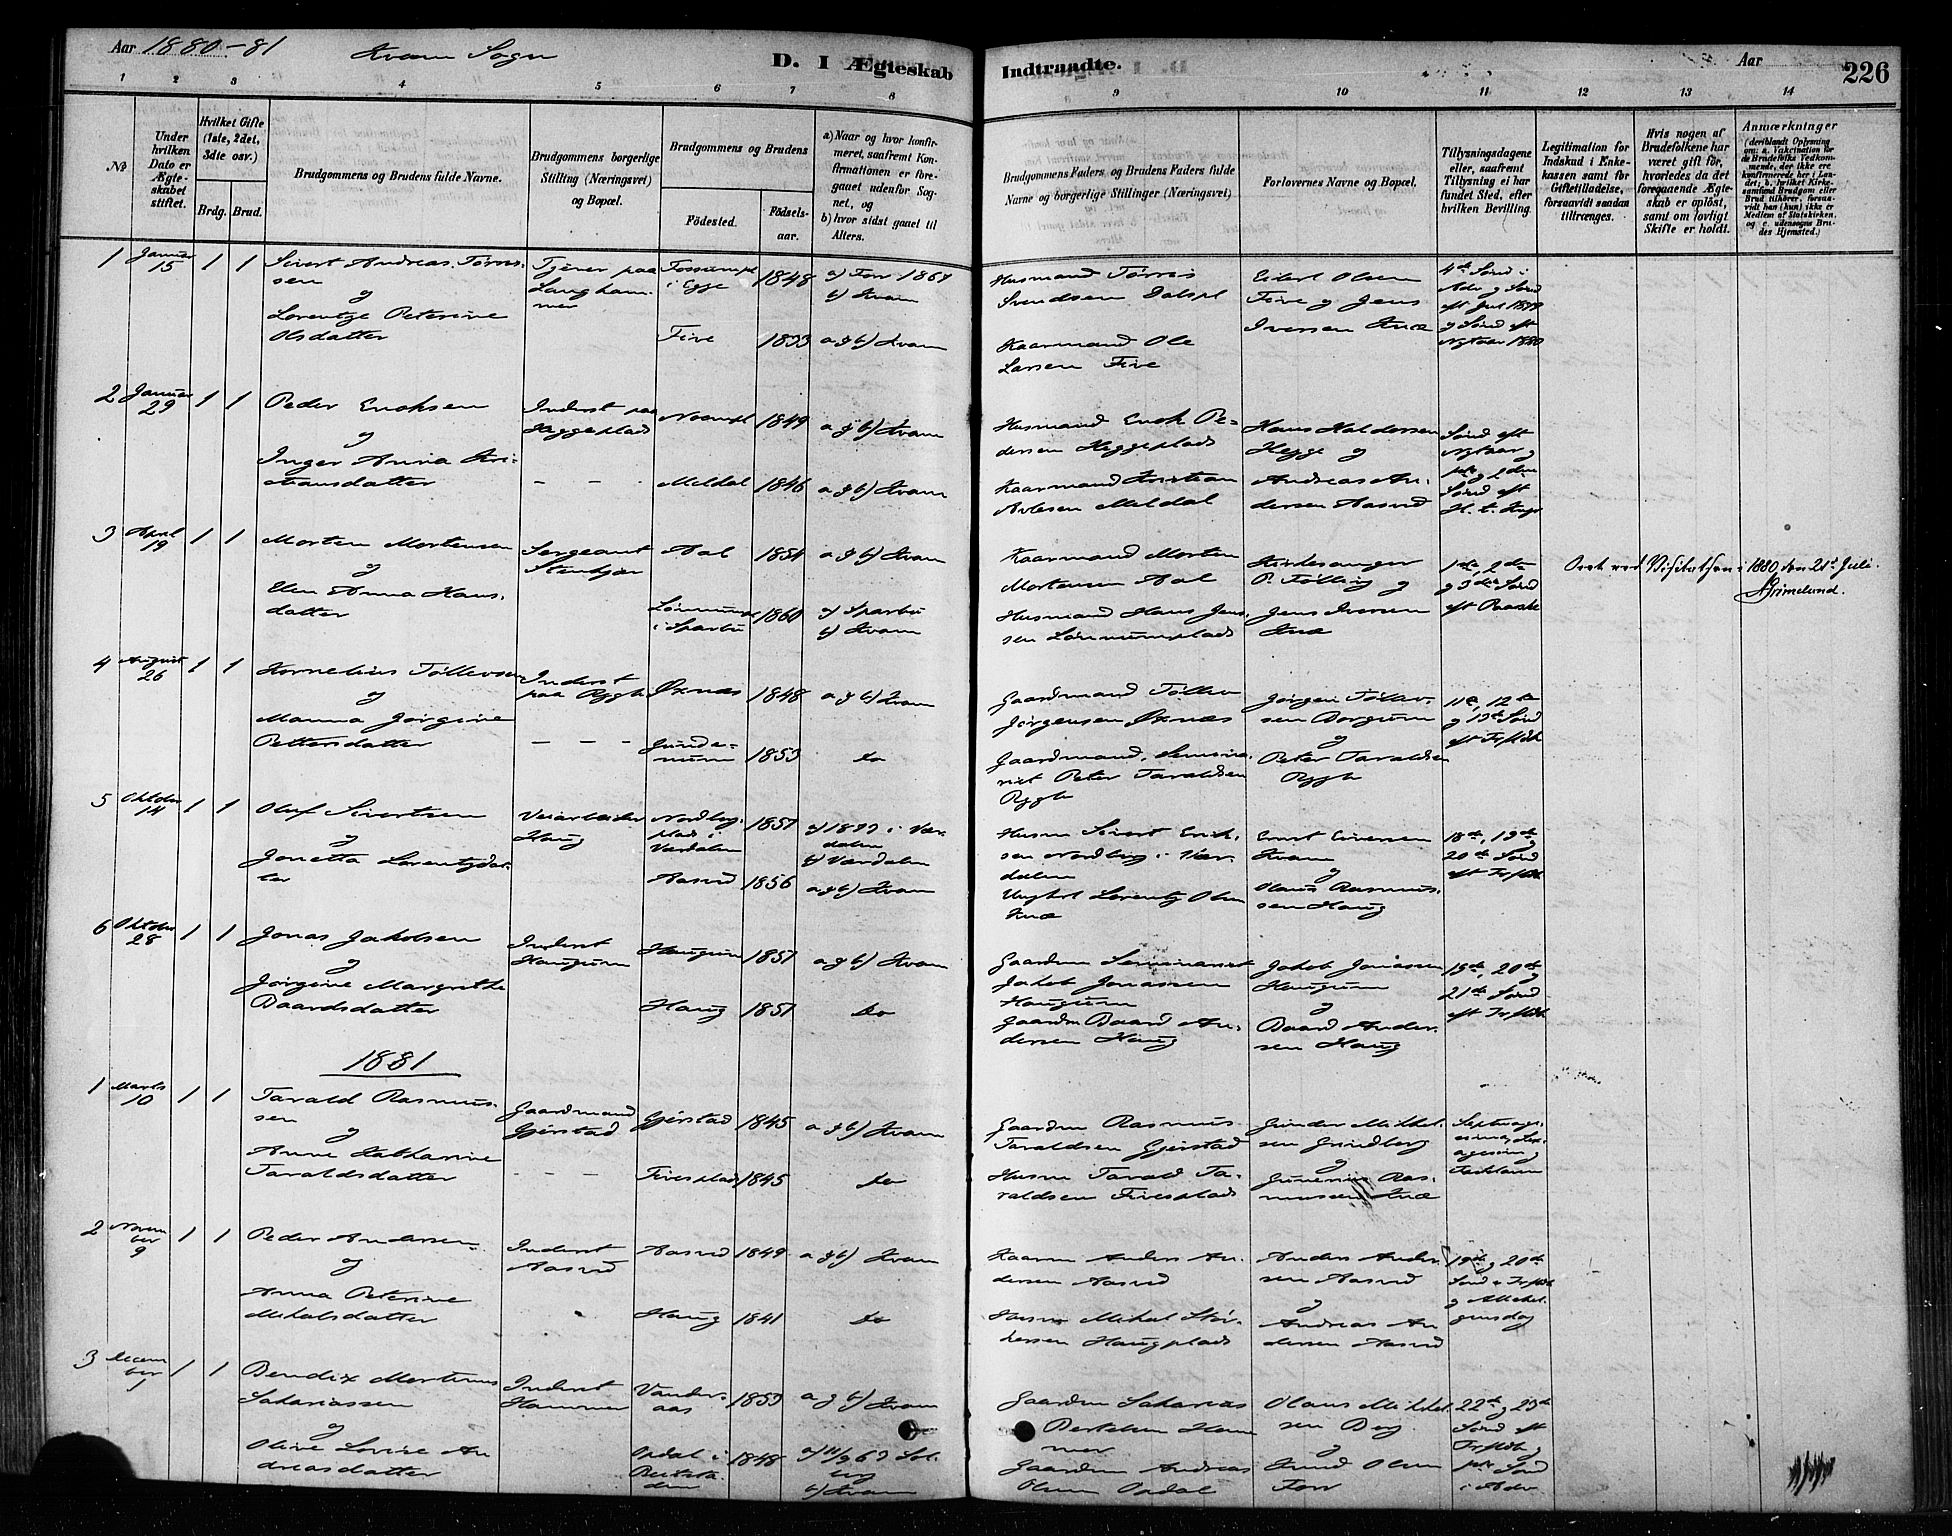 Aar 1880-81 Kvam Sogn
D. I Ægteskab Indtraadte.
Aar 226
1 2 3 4 5 6 7 8 9 10 11 12 13 14
№
Under hvilken Dato er Ægteskabet stiftet.
Hvilket Gifte (1ste, 2det, 3die osv.)
Brdg. Brud.
Brudgommens og Brudens fulde Navne.
Brudgommens borgerlige Stilling (Næringsvei) og Bopæl.
Brudgommens og Brudens
Fødested. Fødselsaar.
a) Naar og hvor konfirmeret, saafremt Konfirmationen er foregaaet udenfor Sognet, og
b) hvor sidst gaaet til Alters.
Brudgommens Faders og Brudens Faders fulde Navne og borgerlige Stillinger (Næringsvei)
Forlovernes Navne og Bopæl.
Tillysningsdagene eller, saafremt Tillysning ei har fundet Sted, efter hvilken Bevilling.
Legitimation for Indskud i Enkekassen samt for Giftetilladelse, forsaavidt saadan tiltrænges.
Hvis nogen af Brudefolkene har været gift før, hvorledes da det foregaaende Ægteskab er opløst, samt om lovligt Skifte er holdt.
Anmærkninger (deriblandt Oplysning om: a. Vakcination for de Brudefolks Vedkommende, der ikke ere konfirmerede her i Landet; b. hvilket Kirkesamfund Brudgom eller Brud tilhører, forsaavidt han (hun) ikke er Medlem af Statskirken, og c. udensogns Brudes Hjemsted.)
1 Januar 15 1 1 Sivert Andreas Tørres-
sen
og
Lorentze Peterine
Olsdatter
Tjener paa
Langham-
mer
Fossumpl
i Egge 1848 a) Forr 1867
b) Kvam
Five 1833 a og b) Kvam
Husmand Tørris
Svendsen Dalspl
Kaarmand Ole
Larsen Five
Eilert Olsen
Five og Jens
Iversen Knæ
4de Sønd i
Adv og Sønd
eft Jul 1879
og Sønd eft
Nytaar 1880
2 Januar 29 1 1 Peder Enoksen
og
Inger Anna Kri-
stiansdatter
Inderst paa
Heggeplads
1849 a og b) Kvam
– – Meldal 1846 a og b) Kvam
Husmand Enok Pe-
dersen Heggeplads
Kaarmand Kristian
Meldal
Hans Haldorsen
Hegge og
Andreas An-
dersen Aasved
Sønd eft
Nytaar og
3 April 19 1 1 Morten Mortensen
og
Elen Anna Hans-
datter
Sergeant
Stenkjær
Aal 1854 a og b) Kvam
i Sparbu 1860 a) Sparbu
b) Kvam
Kaarmand Morten
Mortensen Aal
Husmand Hans Jens-
sen
Kirkesanger
P. Følling og
Jens Iversen
Knæ
1ste, 2den
og 3die Sønd
eft Paaske
Seet ved Visitatsen i 1880 den 21de Juli.
Grimelund.
4 August 26 1 1 Kornelius Tøllevsen
og
Manna Jørgine
Pettersdatter
Inderst
paa Rygh
Øxnæs 1848 a og b) Kvam
– – – Gunde-
num 1853 do
Gaardmand Tøllev
Jørgensen Øxnæs
Gaardmand, Semina-
rist Peter Taraldsen
Rygh
Jørgen Tøllev-
sen Borgum
og
Peter Taraldsen
Rygh
11te, 12te
og 13de Sønd
eft Trefold
5 Oktober 14 1 1 Oluf Sivertsen
og
Jonetta Lorentzdat-
ter
Veiarbeider
Haug
Nordberg-
plads i
Værdalen 1857 a) 1873 i Vær-
dalen
b) Værdalen
Aasved 1856 a og b) Kvam
Husm Sivert Erik-
sen Nordberg i Vær-
dalen
Ungkl Lorentz Olsen
Knæ
Ernst Eversen
Kvam
og
Olaus Rasmus-
sen Haug
18de, 19de og
20de Sønd
eft Trefold
6 Oktober 28 1 1 Jonas Jakobsen
og
Jørgine Margrethe
Baardsdatter
Inderst
Haugum
Haugum 1857 a og b) Kvam
Haug 1857 do
Gaardm Seminarist
Jakob Jonassen
Haugum
Gaardm Baard An-
dersen Haug
Jakob Jonassen
Haugum
og
Baard Ander-
sen Haug
19de, 20de og
21de Sønd
eft Trefold
1881
1 Marts 10 1 1 Tarald Rasmus-
sen
og
Anne Katharine
Taraldsdatter
Gaardmand
Gjørstad
Gjørstad 1845 a og b) Kvam
– – – Fivesplads 1845 do
Gaardm Rasmus
Taraldsen Gjørstad
Husm Tarald Ta-
raldsen Fivesplads
Mikkel-
sen Grindberg
og
Gunerius Ras-
mussen Knæ
Septuage-
sima, Sex-
agesima og
Fastelavn
2 Novem
ber 9 1 1 Peder Andersen
og
Anna Peterine
Mikalsdatter
Inderst
Aasved
Aasved 1849 a og b) Kvam
Haug 1841 do
Kaarm Anders An-
dersen Aasved
Husm Mikal Stør-
kersen Haugplads
Anders Ander-
sen Aasved
og
Andreas An-
dersen Aasved
19de og 20de
Sønd e Trefold
og Mikkel-
qusdag
3 Decem
ber 1 1 1 Bendix Martinus
Sakariassen
og
Olive Lovise An-
dreasdatter
Inderst
Hammer
Vander-
aas 1853 a og b) Kvam
Opdal i
Beitsta-
den 1848
b) Kvam
Gaardm Sakarias
Bertelsen Ham-
mer
Gaardm Andreas
Olsen Opdal
Olaus Mikkel-
sen Berg
og
Knud Olsen
Forr
22de og 23de
Sønd eft
Trefold og
1ste Sønd
i Adv